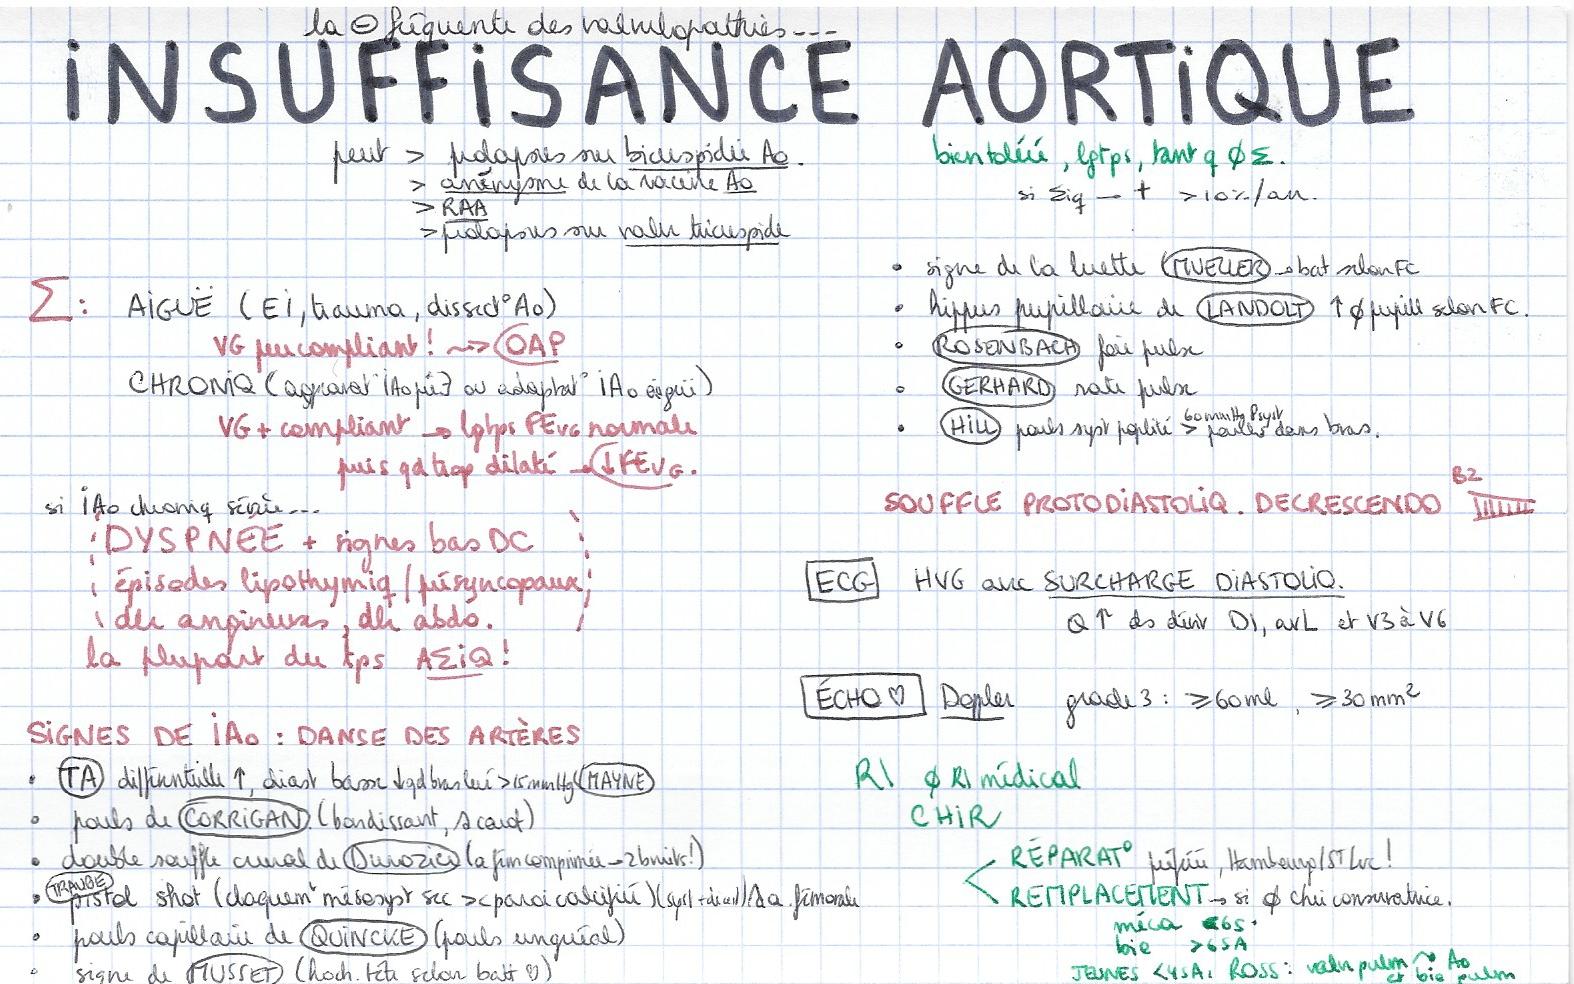 la ⊖ fréquente des valvulopathies---
INSUFFISANCE AORTIQUE
peut > prolapsus sur bicuspidie Ao.
> anévrysme de la racine Ao
> RAA
> prolapsus sur valv tricuspide
bien toléré, lgtps, tant q ∅ Σ.
si Σiq — + >10%/an.
Σ: AIGUË (EI, trauma, dissect° Ao)
VG peu compliant! ~> OAP
CHRONIQ (aggravat° IAo préE ou adaptat° IAo aiguë)
VG + compliant → lgtps FEVG normale
puis qd trop dilaté → ↓FEVG.
si IAo chroniq sévère---
DYSPNÉE + signes bas DC
épisodes lipothymiq/présyncopaux,
dlr angineuses, dlr abdo.
la plupart du tps AΣiQ!
SIGNES DE IAo : DANSE DES ARTÈRES
• TA différentielle ↑, diast basse ↓ qd bras levé >15mmHg (MAYNE)
• pouls de CORRIGAN (bondissant, a carot)
• double souffle crural de Duroziez (a fem comprimée → 2 bruits!)
• TRAUBE pistol shot (claquemt mésosyst sec >< paroi calcifiée) (syst + diast) / a. fémorale
• pouls capillaire de QUINCKE (pouls unguéal)
• signe de MUSSET (hoch. tête selon batt ♡)
• signe de la luette (MUELLER) → bat selon FC
• hippus pupillaire de LANDOLT ↑ ∅ pupill selon FC.
• ROSENBACH foie pulse
• GERHARD rate pulse
• HILL pouls syst poplité > 60mmHg Psyst pouls dans bras.
SOUFFLE PROTODIASTOLIQ. DECRESCENDO B2
ECG HVG avec SURCHARGE DIASTOLIQ.
Q↑ ds dériv D1, avL et V3 à V6
ÉCHO ♡ Doppler grade 3 : ≥60ml, ≥30mm²
R\ ∅ R\ médical
CHIR
RÉPARAT° préférée, Hambourg/ST Luc!
REMPLACEMENT → si ∅ chir conservatrice.
méca <65.
bio >65A
JEUNES <45A: ROSS: valv pulm ↷ Ao
et bio pulm